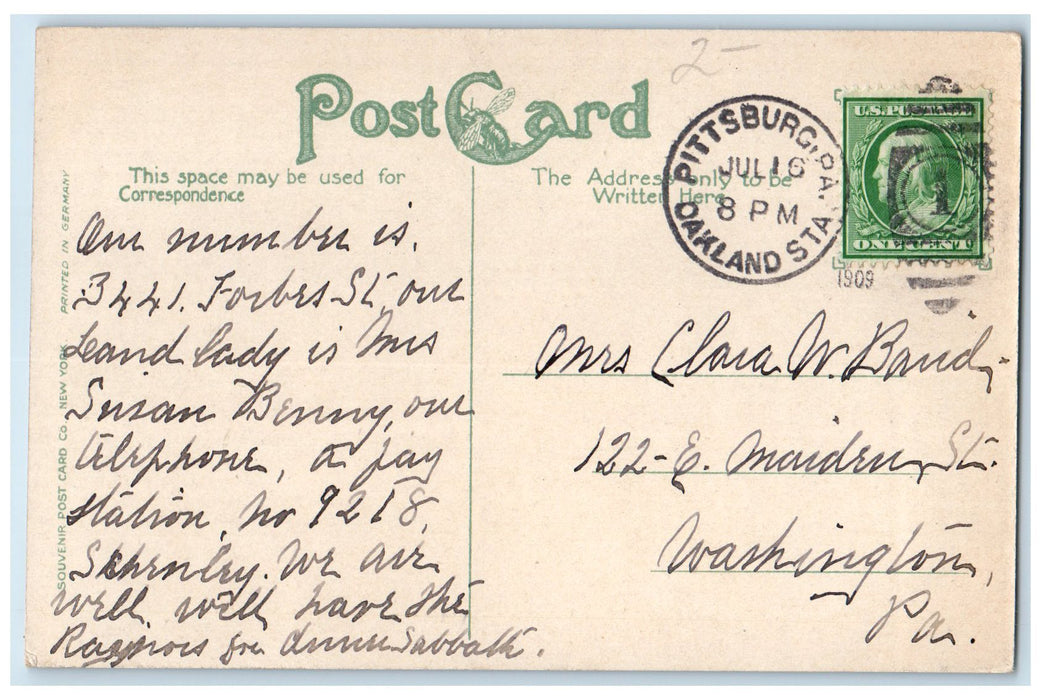 2-
Post Card
This space may be used for
Correspondence
The Address only to be
Written Here
PITTSBURG, PA.
JUL 16
8 PM
OAKLAND STA.
1909
U.S. POSTAGE
ONE CENT
1
SOUVENIR POST CARD CO. NEW YORK PRINTED IN GERMANY
Our number is.
3441. Forbes St, our
Land lady is Mrs
Susan Benny, our
telephone, a pay
station, No 9218,
Schenley. We are
well will have the
for dinner Sabbath.
Mrs Clara W. Baird,
122-E. Maiden St.
Washington,
Pa.